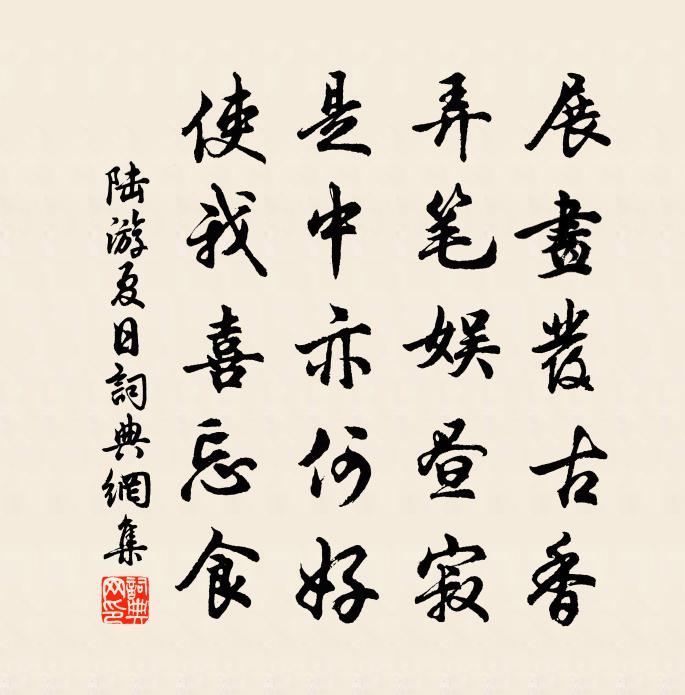 展畫發古香
弄笔娱昼寂
是中亦何好
使我喜忘食
陆游夏日詞典網集
詞典网印